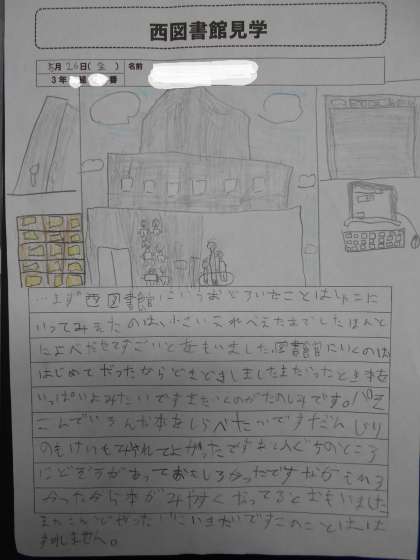 西図書館見学
5月26日(金) 名前
3年 組 番
まず西図書館に おどろいたことはしゃこに
いってみえたのは小さいエレベえたまでした ほんと
に べかでてすごいとをもいました。図書館にいくのは
はじめてだったからどきどきしましたまだいったとき本を
いっぱいよみたいですまたいくのがたのしみです。パソ
こんでいろんな本をしらべたいですだん
のもけいもみれてよかったですまた入ぐちのところ
にどぞうがあっておもしろかったですながえれる
かったから本がみやすくなってるとおもいました
またこんどぜったいにいきたいですこのことはわ
すれません。